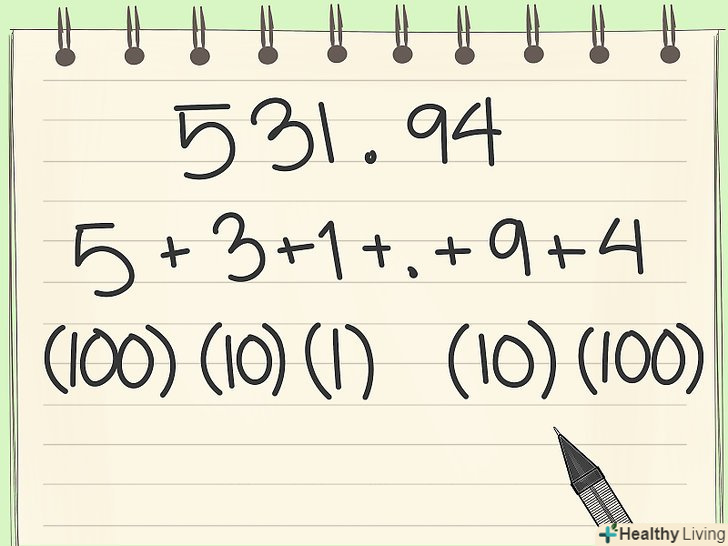 531.94
5+3+1+.+9+4
(100) (10) (1) (10) (100)
Healthy Living